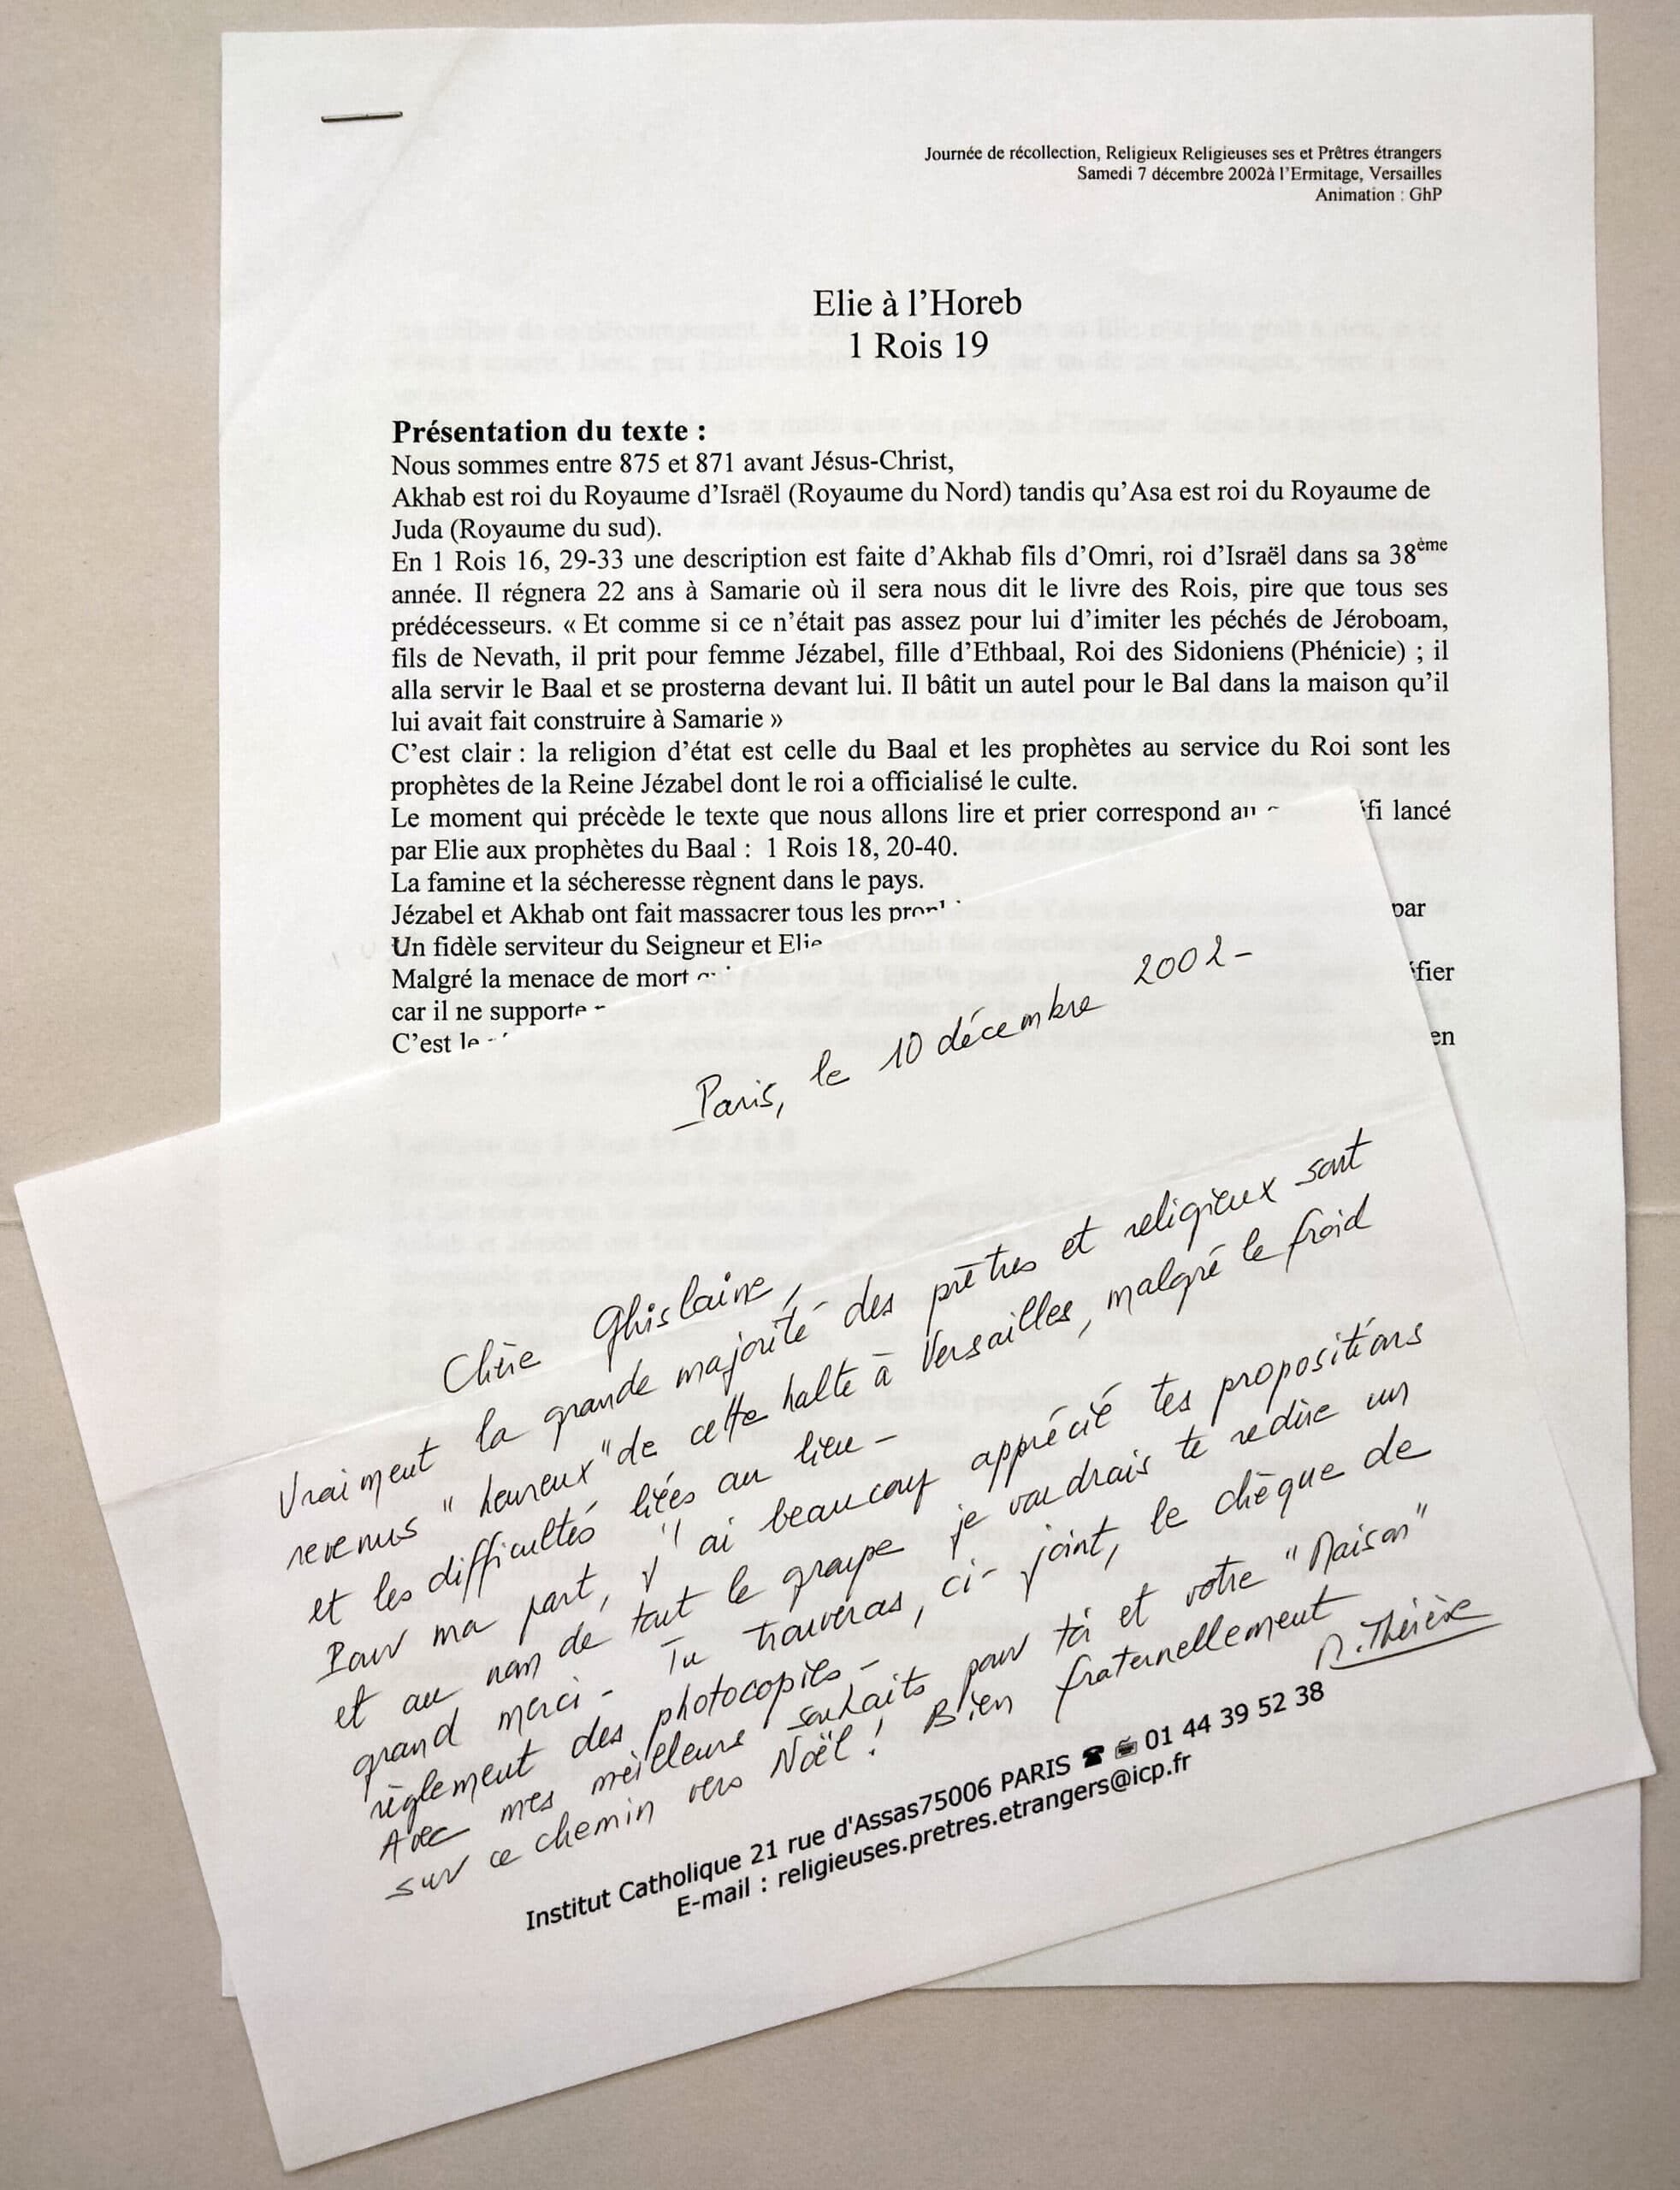 Journée de récollection, Religieux Religieuses ses et Prêtres étrangers
Samedi 7 décembre 2002à l'Ermitage, Versailles
Animation : GhP
Elie à l'Horeb
1 Rois 19
Présentation du texte :
Nous sommes entre 875 et 871 avant Jésus-Christ,
Akhab est roi du Royaume d'Israël (Royaume du Nord) tandis qu'Asa est roi du Royaume de
Juda (Royaume du sud).
En 1 Rois 16, 29-33 une description est faite d'Akhab fils d'Omri, roi d'Israël dans sa 38ème
année. Il régnera 22 ans à Samarie où il sera nous dit le livre des Rois, pire que tous ses
prédécesseurs. « Et comme si ce n'était pas assez pour lui d'imiter les péchés de Jéroboam,
fils de Nevath, il prit pour femme Jézabel, fille d'Ethbaal, Roi des Sidoniens (Phénicie) ; il
alla servir le Baal et se prosterna devant lui. Il bâtit un autel pour le Bal dans la maison qu'il
lui avait fait construire à Samarie »
C'est clair : la religion d'état est celle du Baal et les prophètes au service du Roi sont les
prophètes de la Reine Jézabel dont le roi a officialisé le culte.
Le moment qui précède le texte que nous allons lire et prier correspond au fi lancé
par Elie aux prophètes du Baal : 1 Rois 18, 20-40.
La famine et la sécheresse règnent dans le pays.
Jézabel et Akhab ont fait massacrer tous les par
Un fidèle serviteur du Seigneur et Elie
Malgré la menace de mort fier
car il ne supporte
C'est le en
Paris, le 10 décembre 2002-
Chère Ghislaine,
Vraiment la grande majorité des prêtres et religieux sont
revenus "heureux" de cette halte à Versailles, malgré le froid
et les difficultés liées au lieu-
Pour ma part, j'ai beaucoup apprécié tes propositions
et au nom de tout le groupe je voudrais te redire un
grand merci- Tu trouveras, ci-joint, le chèque de
règlement des photocopies-
Avec mes meilleurs souhaits pour toi et votre "Maison"
sur ce chemin vers Noël ! Bien fraternellement
M. Thérèse
Institut Catholique 21 rue d'Assas75006 PARIS ☎ 📠 01 44 39 52 38
E-mail : religieuses.pretres.etrangers@icp.fr